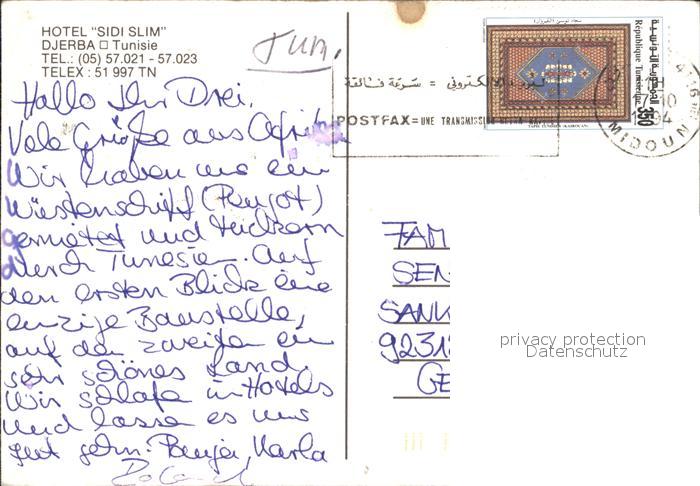 HOTEL "SIDI SLIM"
DJERBA □ Tunisie
TEL.: (05) 57.021 - 57.023
TELEX : 51 997 TN
Tun.
Hallo Ihr Drei,
Viele Grüße aus Afrika
Wir haben uns ein
Wüstenschiff (Peugot)
gemietet und tuckern
durch Tunesien. Auf
den ersten Blick eine
einzige Baustelle,
auf den zweiten ein
sehr schönes Land.
Wir schlafen in Hotels
und lassen es uns
gut gehn. Karla
Roland
République Tunisienne
350
POSTFAX = UNE TRANSMISSION
10
MIDOUN
FAM
SEN
SANK
9231
GE
privacy protection
Datenschutz